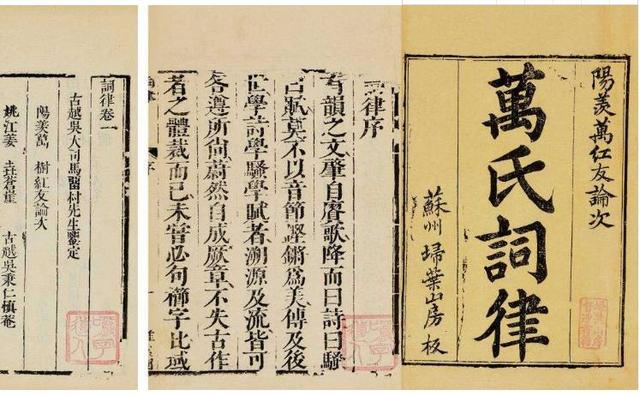 陽羨萬紅友論次
萬氏詞律
蘇州埽葉山房板
詞律序
有韻之文肇自賡歌降而曰詩曰騷
曰賦莫不以音節鏗鏘爲美傳及後
世學詩學騷學賦者溯源及流皆可
各遵所尚蔚然自成厥章不失古作
者之體裁而已未嘗必句櫛字比域
詞律卷一
古越吳大司馬畱村先生鑒定
陽羨萬 樹紅友論次
姚江姜 垚蒼崖 古越吳秉仁慎菴